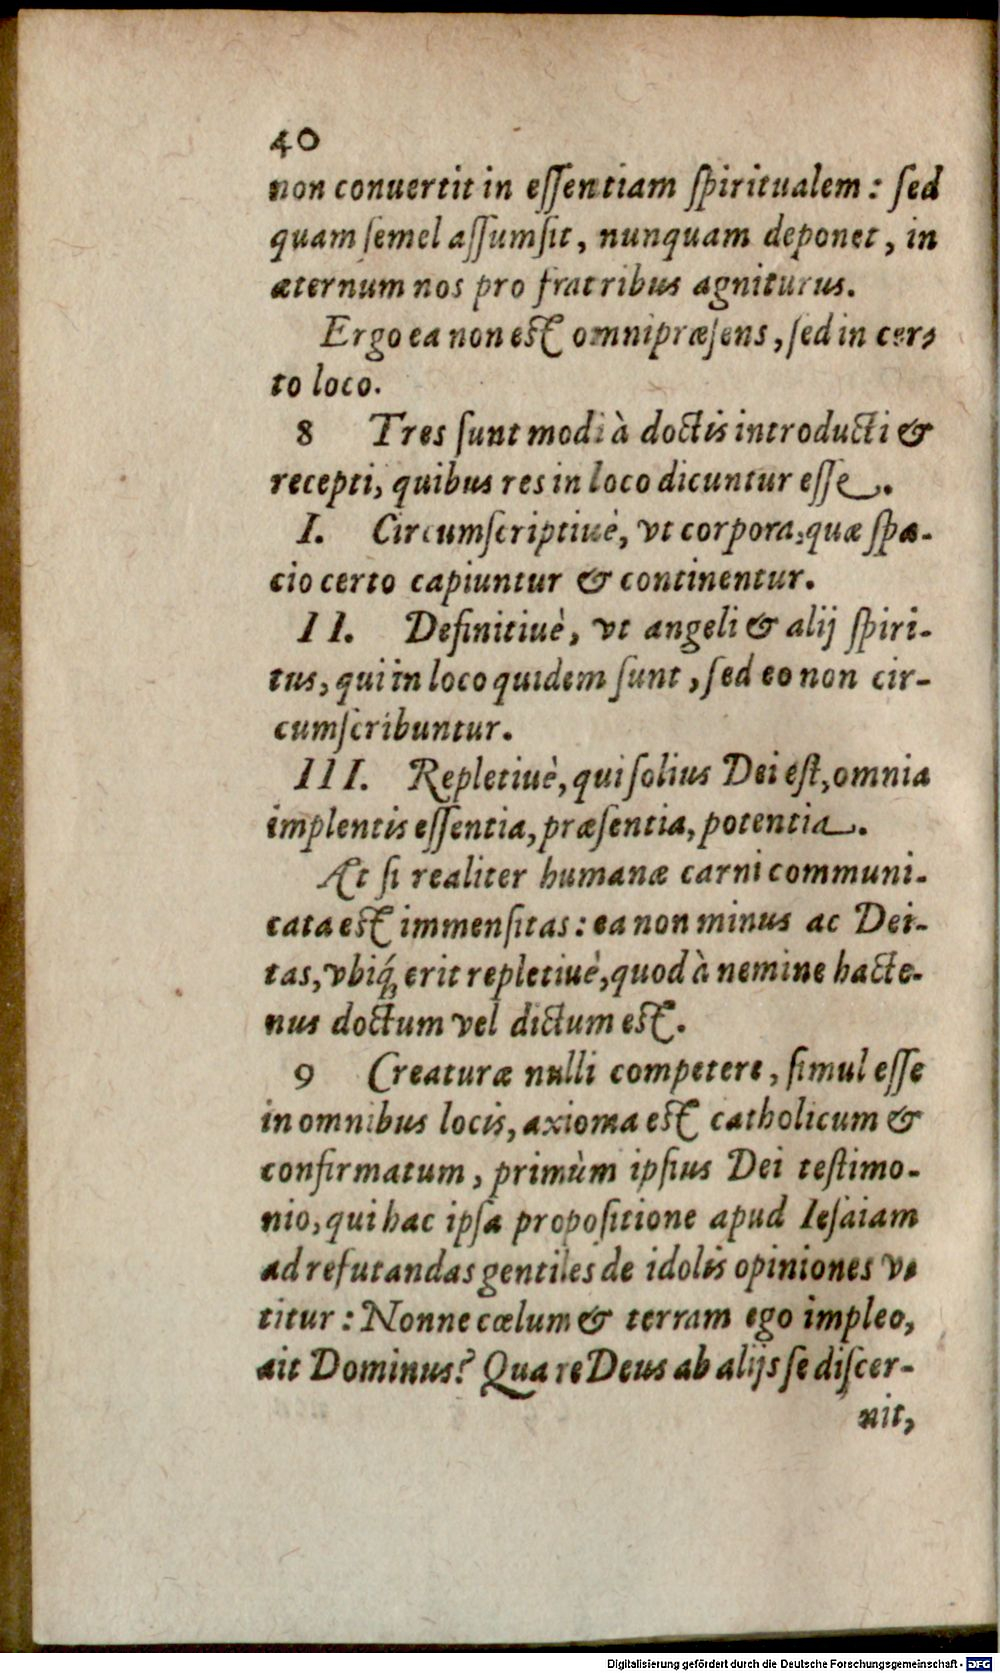 40
non conuertit in eſſentiam ſpiritualem: ſed
quam ſemel aſſumſit, nunquam deponet, in
æternum nos pro fratribus agniturus.
Ergo ea non eſt omnipræſens, ſed in cer-
to loco.
8 Tres ſunt modi à doctis introducti &
recepti, quibus res in loco dicuntur eſſe.
I. Circumſcriptiuè, vt corpora, quæ ſpa-
cio certo capiuntur & continentur.
II. Definitiuè, vt angeli & alij ſpiri-
tus, qui in loco quidem ſunt, ſed eo non cir-
cumſcribuntur.
III. Repletiuè, qui ſolius Dei eſt, omnia
implentis eſſentia, præſentia, potentia.
Æt ſi realiter humanæ carni communi-
cata eſt immenſitas: ea non minus ac Dei-
tas, vbiq́; erit repletiuè, quod à nemine hacte-
nus doctum vel dictum eſt.
9 Creaturæ nulli competere, ſimul eſſe
in omnibus locis, axioma eſt catholicum &
confirmatum, primùm ipſius Dei teſtimo-
nio, qui hac ipſa propoſitione apud Ieſaiam
ad refutandas gentiles de idolis opiniones v-
titur: Nonne cœlum & terram ego impleo,
ait Dominus? Qua re Deus ab alijs ſe diſcer-
nit,
Digitalisierung gefördert durch die Deutsche Forschungsgemeinschaft - DFG